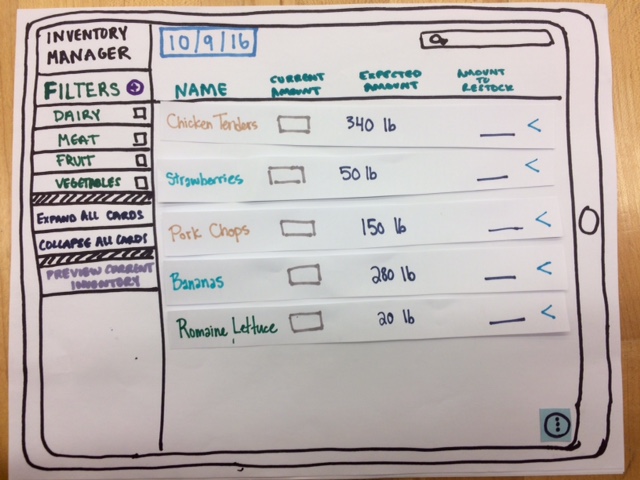 INVENTORY
MANAGER
10/9/16
FILTERS
DAIRY
MEAT
FRUIT
VEGETABLES
EXPAND ALL CARDS
COLLAPSE ALL CARDS
PREVIEW CURRENT
INVENTORY
NAME
CURRENT
AMOUNT
EXPECTED
AMOUNT
AMOUNT
TO
RESTOCK
Chicken Tenders 340 lb <
Strawberries 50 lb <
Pork Chops 150 lb <
Bananas 280 lb <
Romaine Lettuce 20 lb <